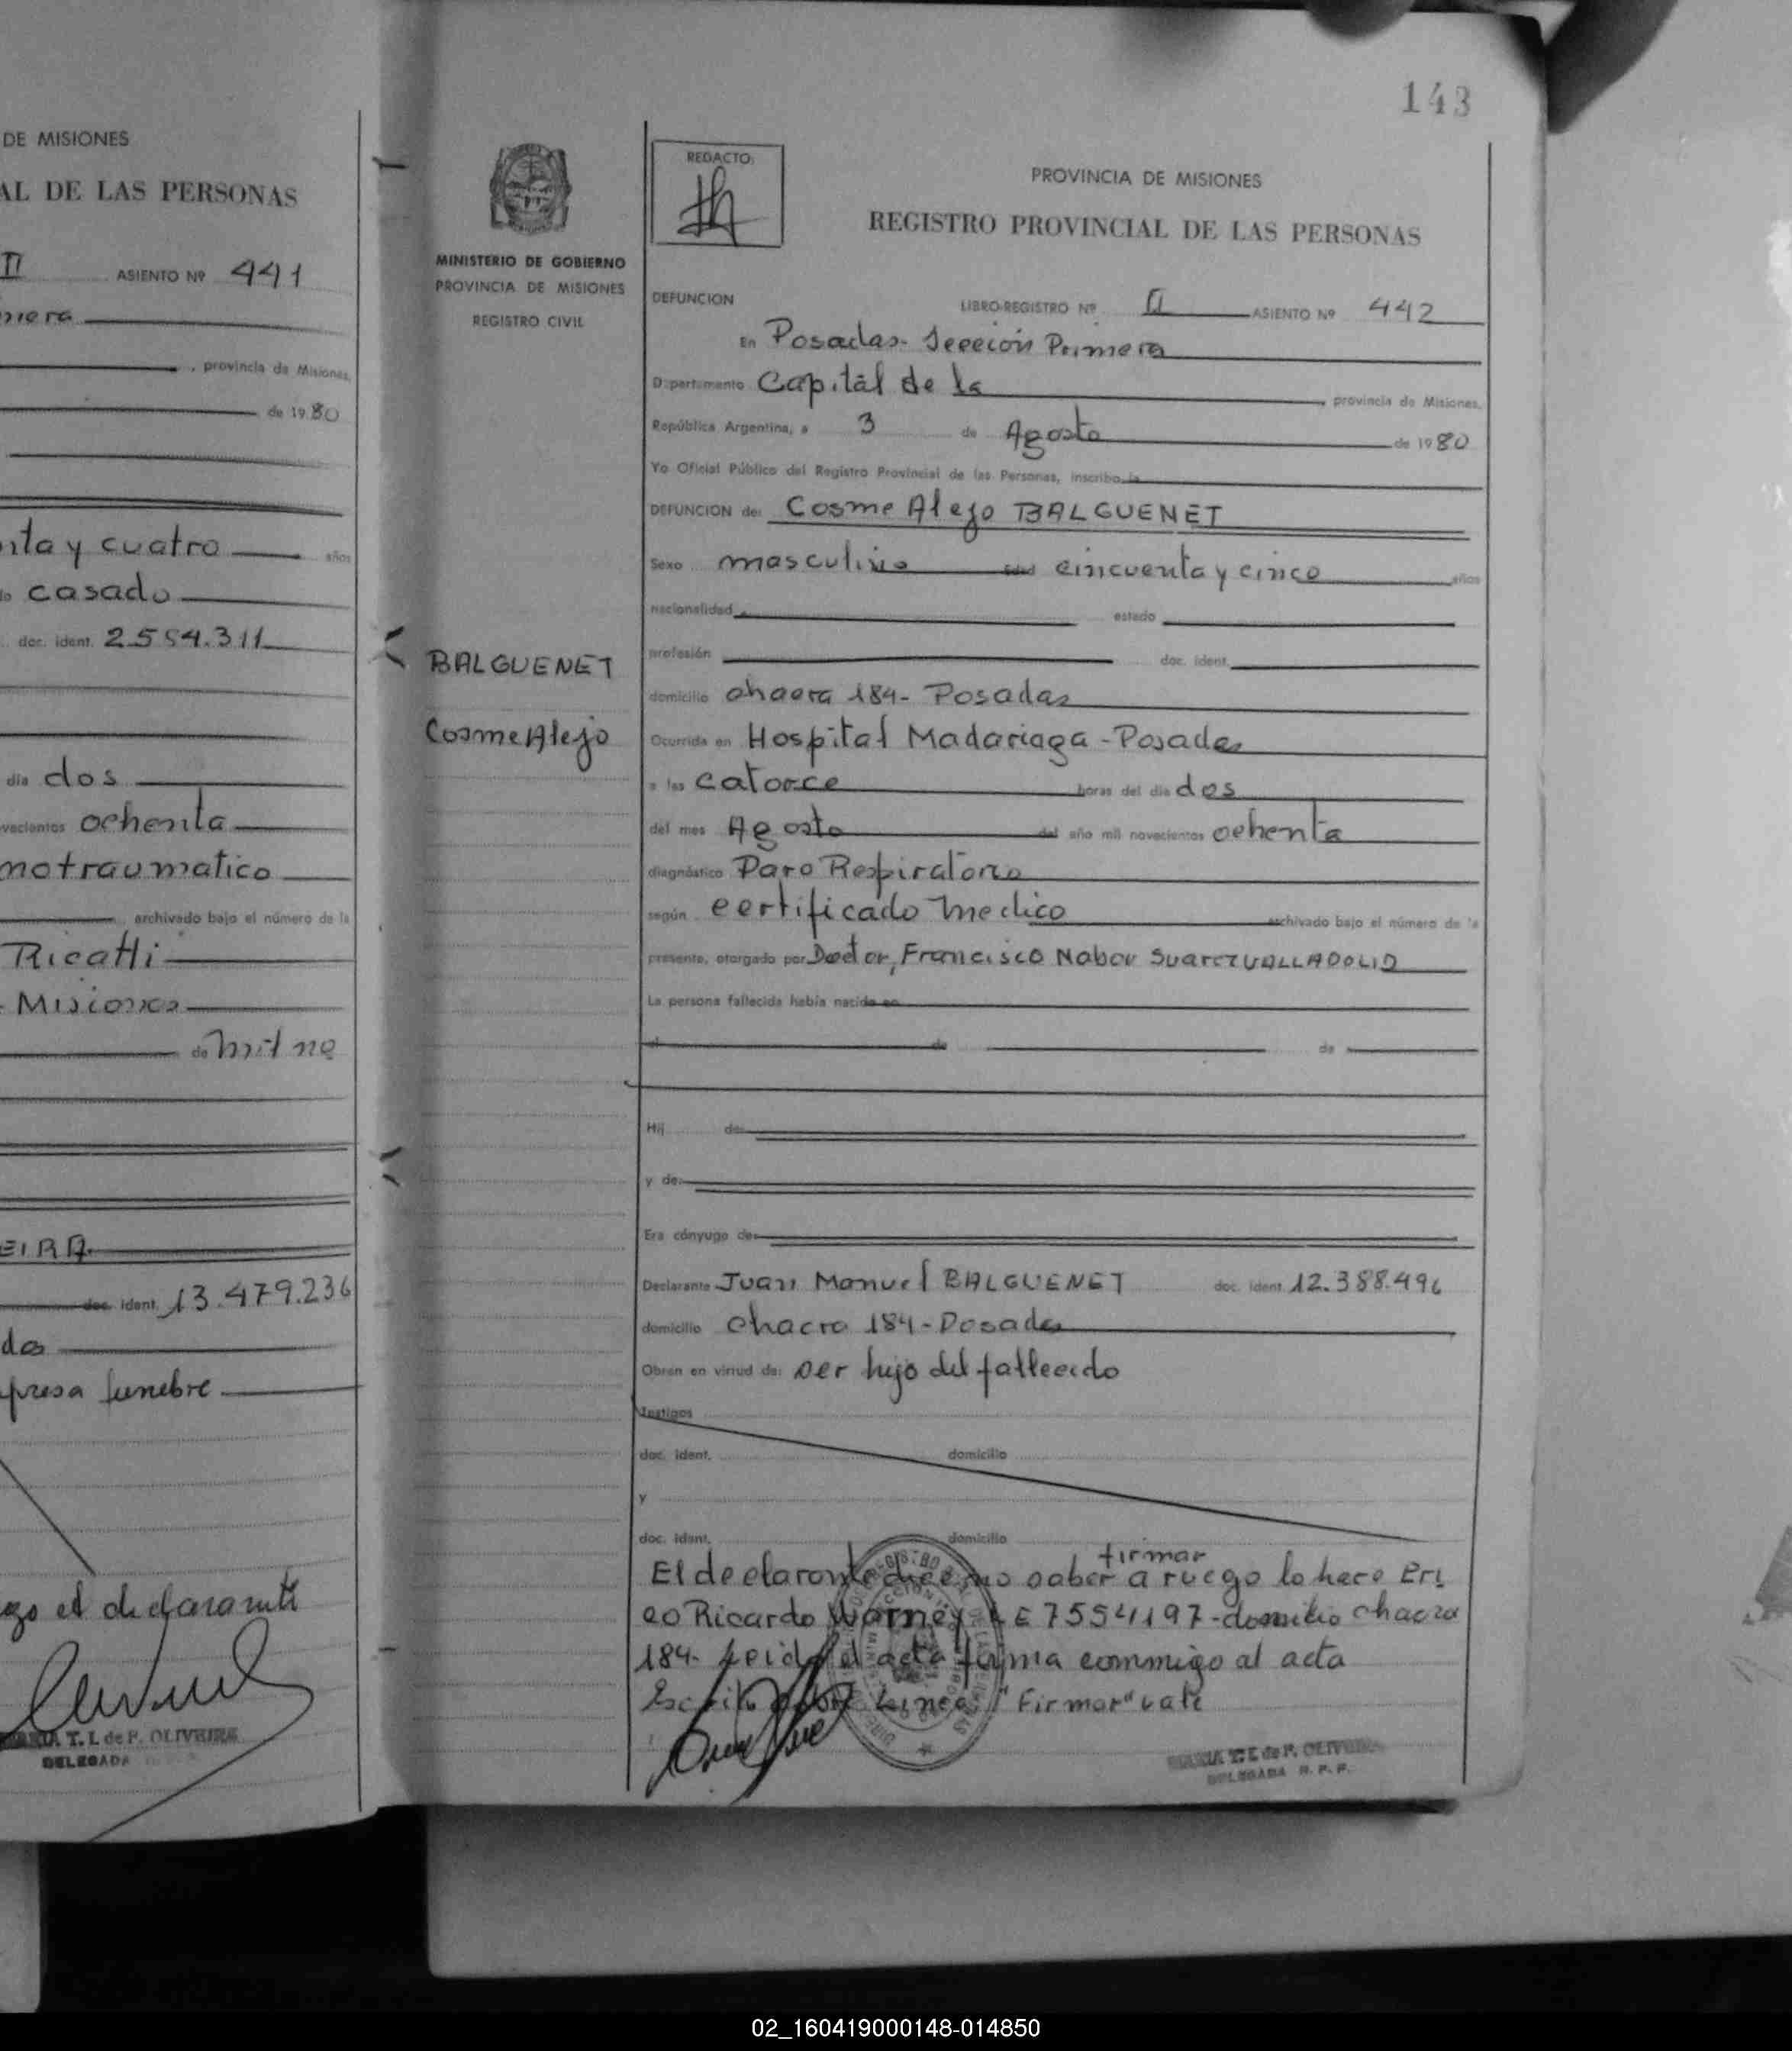 DE MISIONES
AL DE LAS PERSONAS
II ASIENTO Nº 441
mera
, provincia de Misiones,
de 1980
nta y cuatro años
casado
doc. ident. 2.554.311
día dos
vecientos ochenta
motraumatico
archivado bajo el número de la
Ricatti
- Misiones
de mil no
EIRA
doc. ident. 13.479.236
das
presa funebre
go el declarante
MARIA T. I. de P. OLIVEIRA
DELEGADA
MINISTERIO DE GOBIERNO
PROVINCIA DE MISIONES
REGISTRO CIVIL
BALGUENET
Cosme Alejo
143
REDACTO:
PROVINCIA DE MISIONES
REGISTRO PROVINCIAL DE LAS PERSONAS
DEFUNCION LIBRO-REGISTRO Nº II ASIENTO Nº 442
En Posadas- Sección Primera
Departamento Capital de la , provincia de Misiones,
República Argentina, a 3 de Agosto de 1980
Yo Oficial Público del Registro Provincial de las Personas, inscribo la
DEFUNCION de: Cosme Alejo BALGUENET
Sexo masculino Edad cincuenta y cinco años
nacionalidad estado
profesión doc. ident.
domicilio chacra 184- Posadas
Ocurrida en Hospital Madariaga - Posadas
a las catorce horas del día dos
del mes Agosto del año mil novecientos ochenta
diagnóstico Paro Respiratorio
según certificado medico archivado bajo el número de la
presente, otorgado por Doctor, Francisco Nabor Suarez VALLADOLID
La persona fallecida había nacido en
el de de
Hij de:
y de:
Era cónyuge de:
Declarante Juan Manuel BALGUENET doc. ident. 12.388.496
domicilio chacra 184- Posadas
Obran en virtud de: ser hijo del fallecido
Testigos
doc. ident. domicilio
y
doc. ident. domicilio
firmar
El declarante dice no saber a ruego lo hace Eri
co Ricardo Warney L E 7554197- domicilio chacra
184- Leida el acta firma conmigo al acta
Escrito sobre Linea "Firmar" vale
MARIA T. I. de P. OLIVEIRA
DELEGADA R. P. P.
02_160419000148-014850